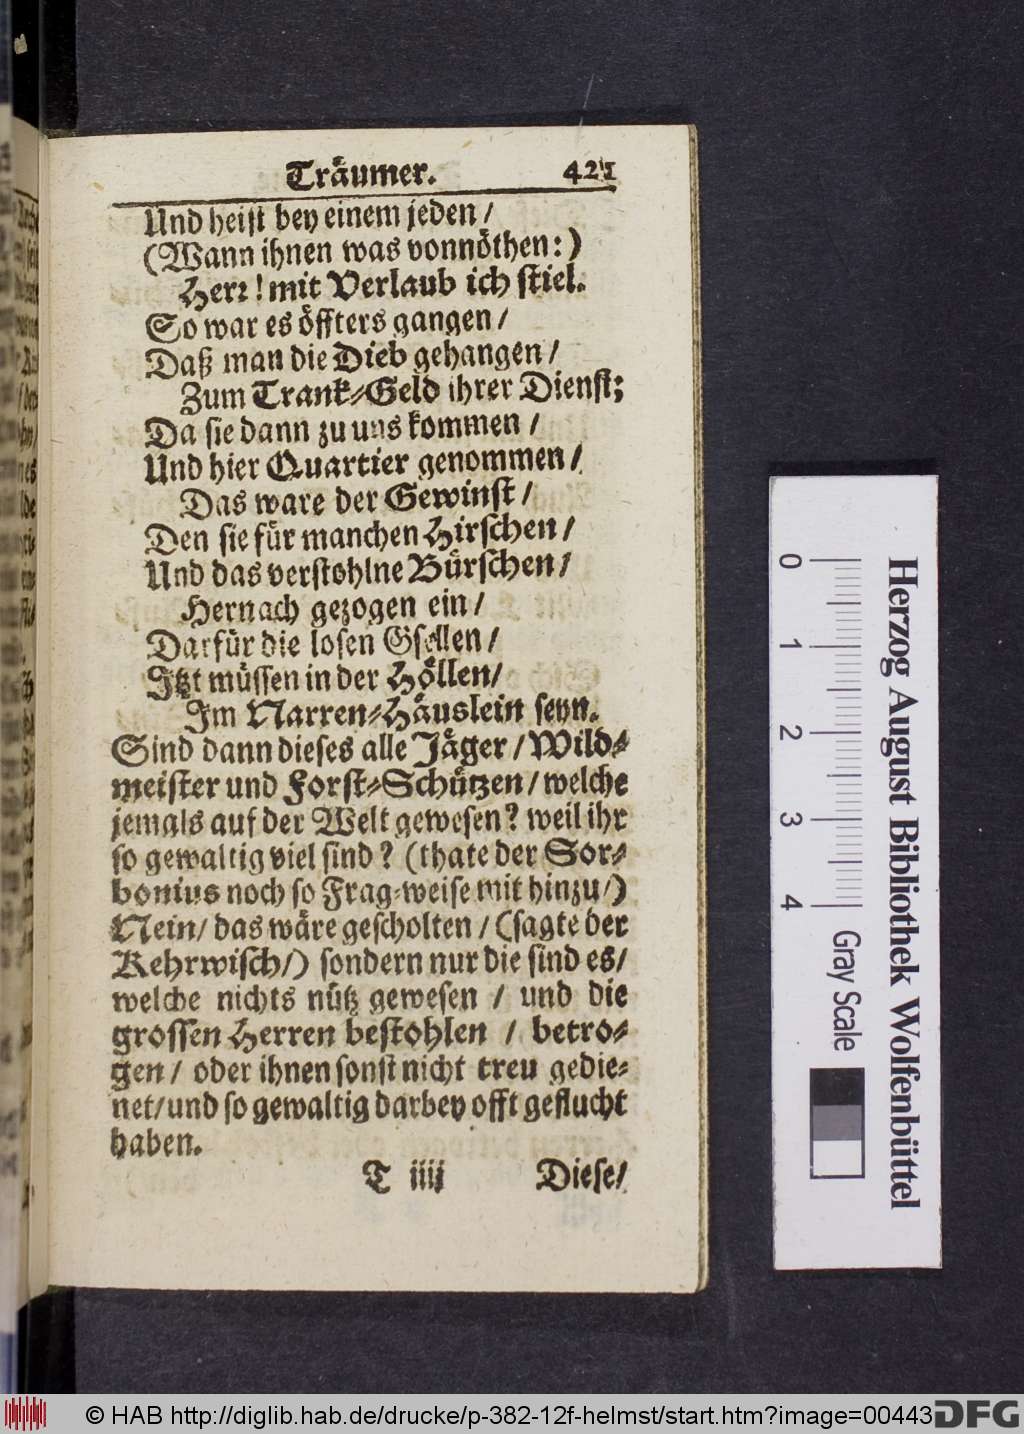 Träumer. 421
Und heist bey einem jeden /
(Wann ihnen was vonnöthen:)
Herr! mit Verlaub ich stiel.
So war es öffters gangen /
Daß man die Dieb gehangen /
Zum Tranck-Geld ihrer Dienst;
Da sie dann zu uns kommen /
Und hier Quartier genommen /
Das ware der Gewinst /
Den sie für manchen Hirschen /
Und das verstohlne Bürschen /
Hernach gezogen ein /
Darfür die losen Gsellen /
Jtzt müssen in der Höllen /
Im Narren-Häuslein seyn.
Sind dann dieses alle Jäger / Wild-
meister und Forst-Schützen / welche
jemals auf der Welt gewesen? weil ihr
so gewaltig viel sind? (thate der Sor-
bonius noch so Frag-weise mit hinzu /)
Nein / das wäre gescholten / (sagte der
Kehrwisch /) sondern nur die sind es /
welche nichts nütz gewesen / und die
grossen Herren bestohlen / betro-
gen / oder ihnen sonst nicht treu gedie-
net / und so gewaltig darbey offt geflucht
haben.
T iiij Diese /
0 1 2 3 4
Gray Scale
Herzog August Bibliothek Wolfenbüttel
© HAB http://diglib.hab.de/drucke/p-382-12f-helmst/start.htm?image=00443
DFG